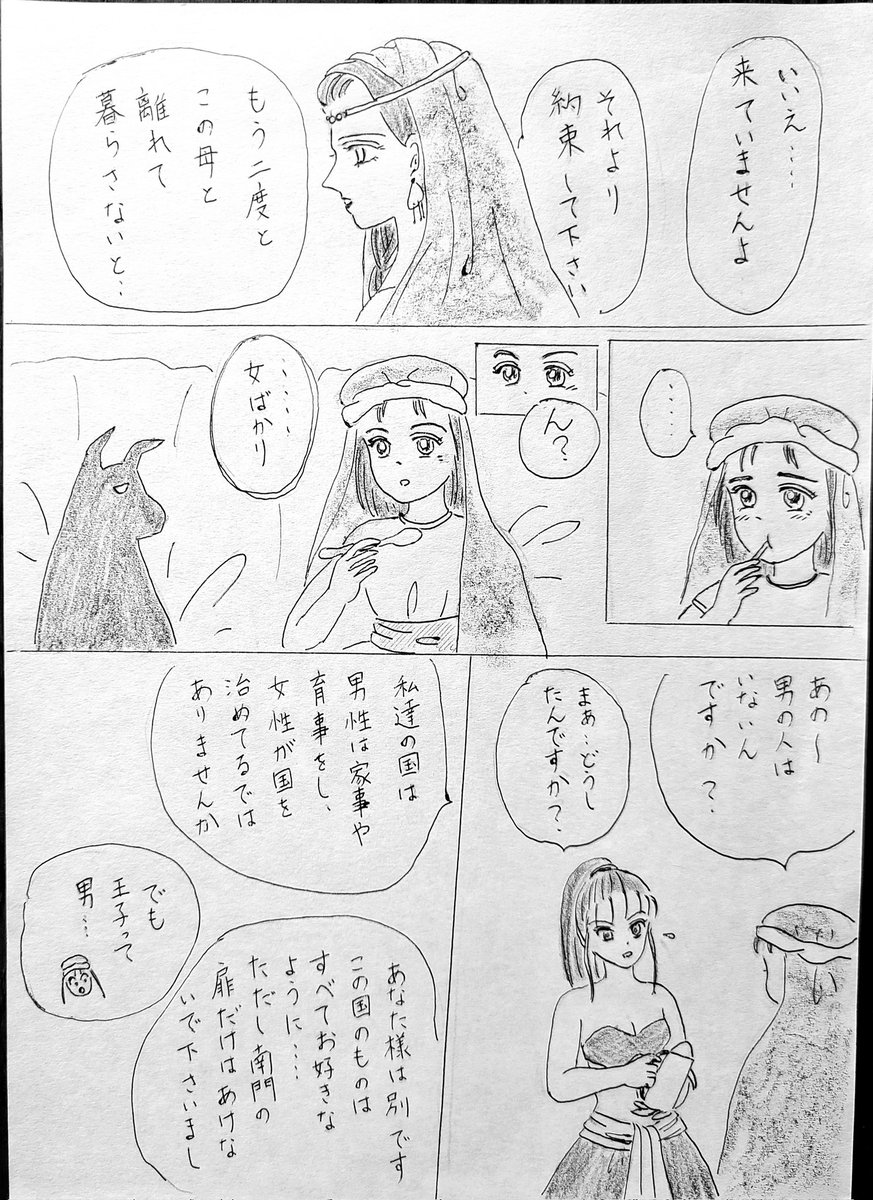 いいえ……
来ていませんよ
それより
約束して下さい
もう二度と
この母と
離れて
暮らさないと…
……
ん?
……
女ばかり
あの〜
男の人は
いないん
ですか?
まぁ…どうし
たんですか?
私達の国は
男性は家事や
育事をし、
女性が国を
治めてるでは
ありませんか
あなた様は別です
この国のものは
すべてお好きな
ように……
ただし南門の
扉だけはあけな
いで下さいまし
でも
王子って
男…